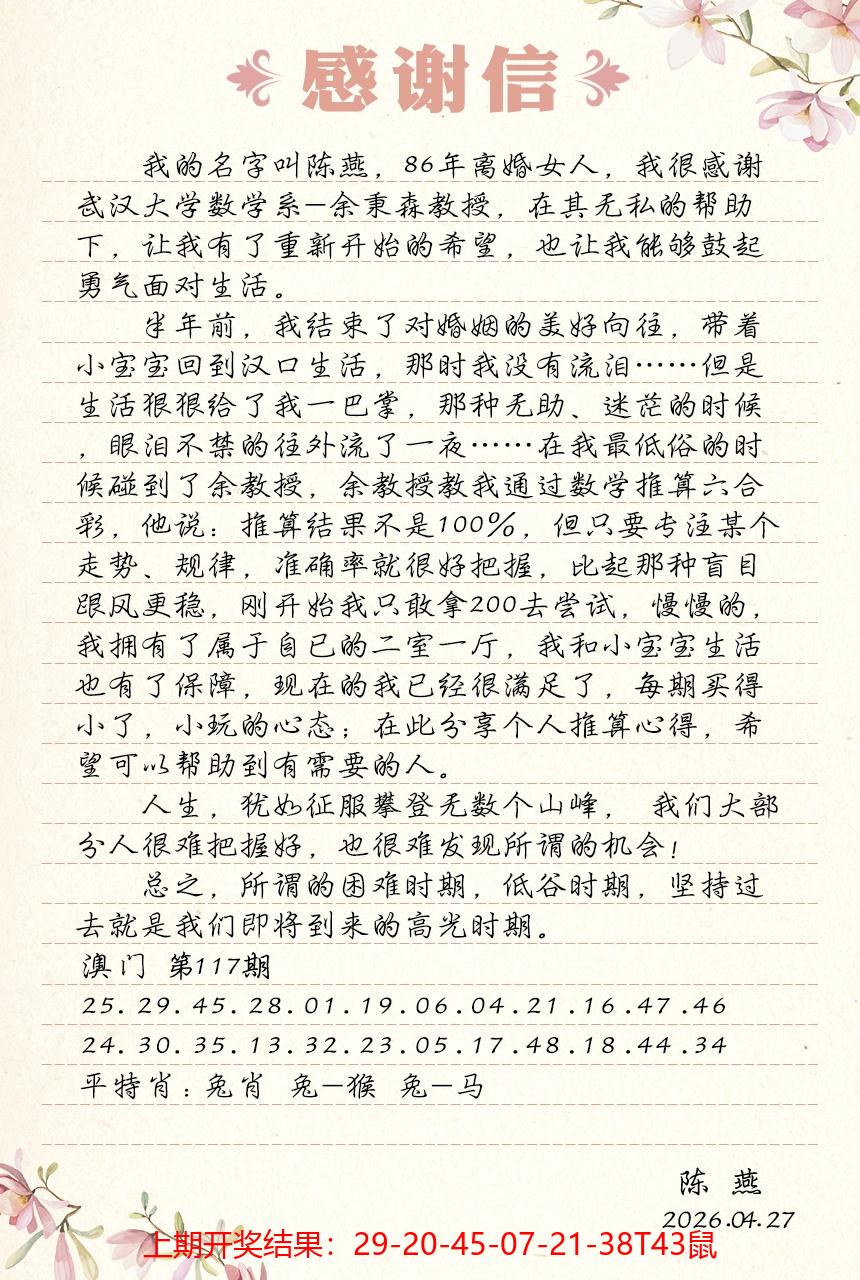 感谢信
我的名字叫陈燕，86年离婚女人，我很感谢
武汉大学数学系—余秉森教授，在其无私的帮助
下，让我有了重新开始的希望，也让我能够鼓起
勇气面对生活。
半年前，我结束了对婚姻的美好向往，带着
小宝宝回到汉口生活，那时我没有流泪……但是
生活狠狠给了我一巴掌，那种无助、迷茫的时候
，眼泪不禁的往外流了一夜……在我最低俗的时
候碰到了余教授，余教授教我通过数学推算六合
彩，他说：推算结果不是100%，但只要专注某个
走势、规律，准确率就很好把握，比起那种盲目
跟风更稳，刚开始我只敢拿200去尝试，慢慢的，
我拥有了属于自己的二室一厅，我和小宝宝生活
也有了保障，现在的我已经很满足了，每期买得
小了，小玩的心态；在此分享个人推算心得，希
望可以帮助到有需要的人。
人生，犹如征服攀登无数个山峰， 我们大部
分人很难把握好，也很难发现所谓的机会！
总之，所谓的困难时期，低谷时期，坚持过
去就是我们即将到来的高光时期。
澳门 第117期
25.29.45.28.01.19.06.04.21.16.47.46
24.30.35.13.32.23.05.17.48.18.44.34
平特肖：兔肖 兔—猴 兔—马
陈 燕
2026.04.27
上期开奖结果：29-20-45-07-21-38T43鼠